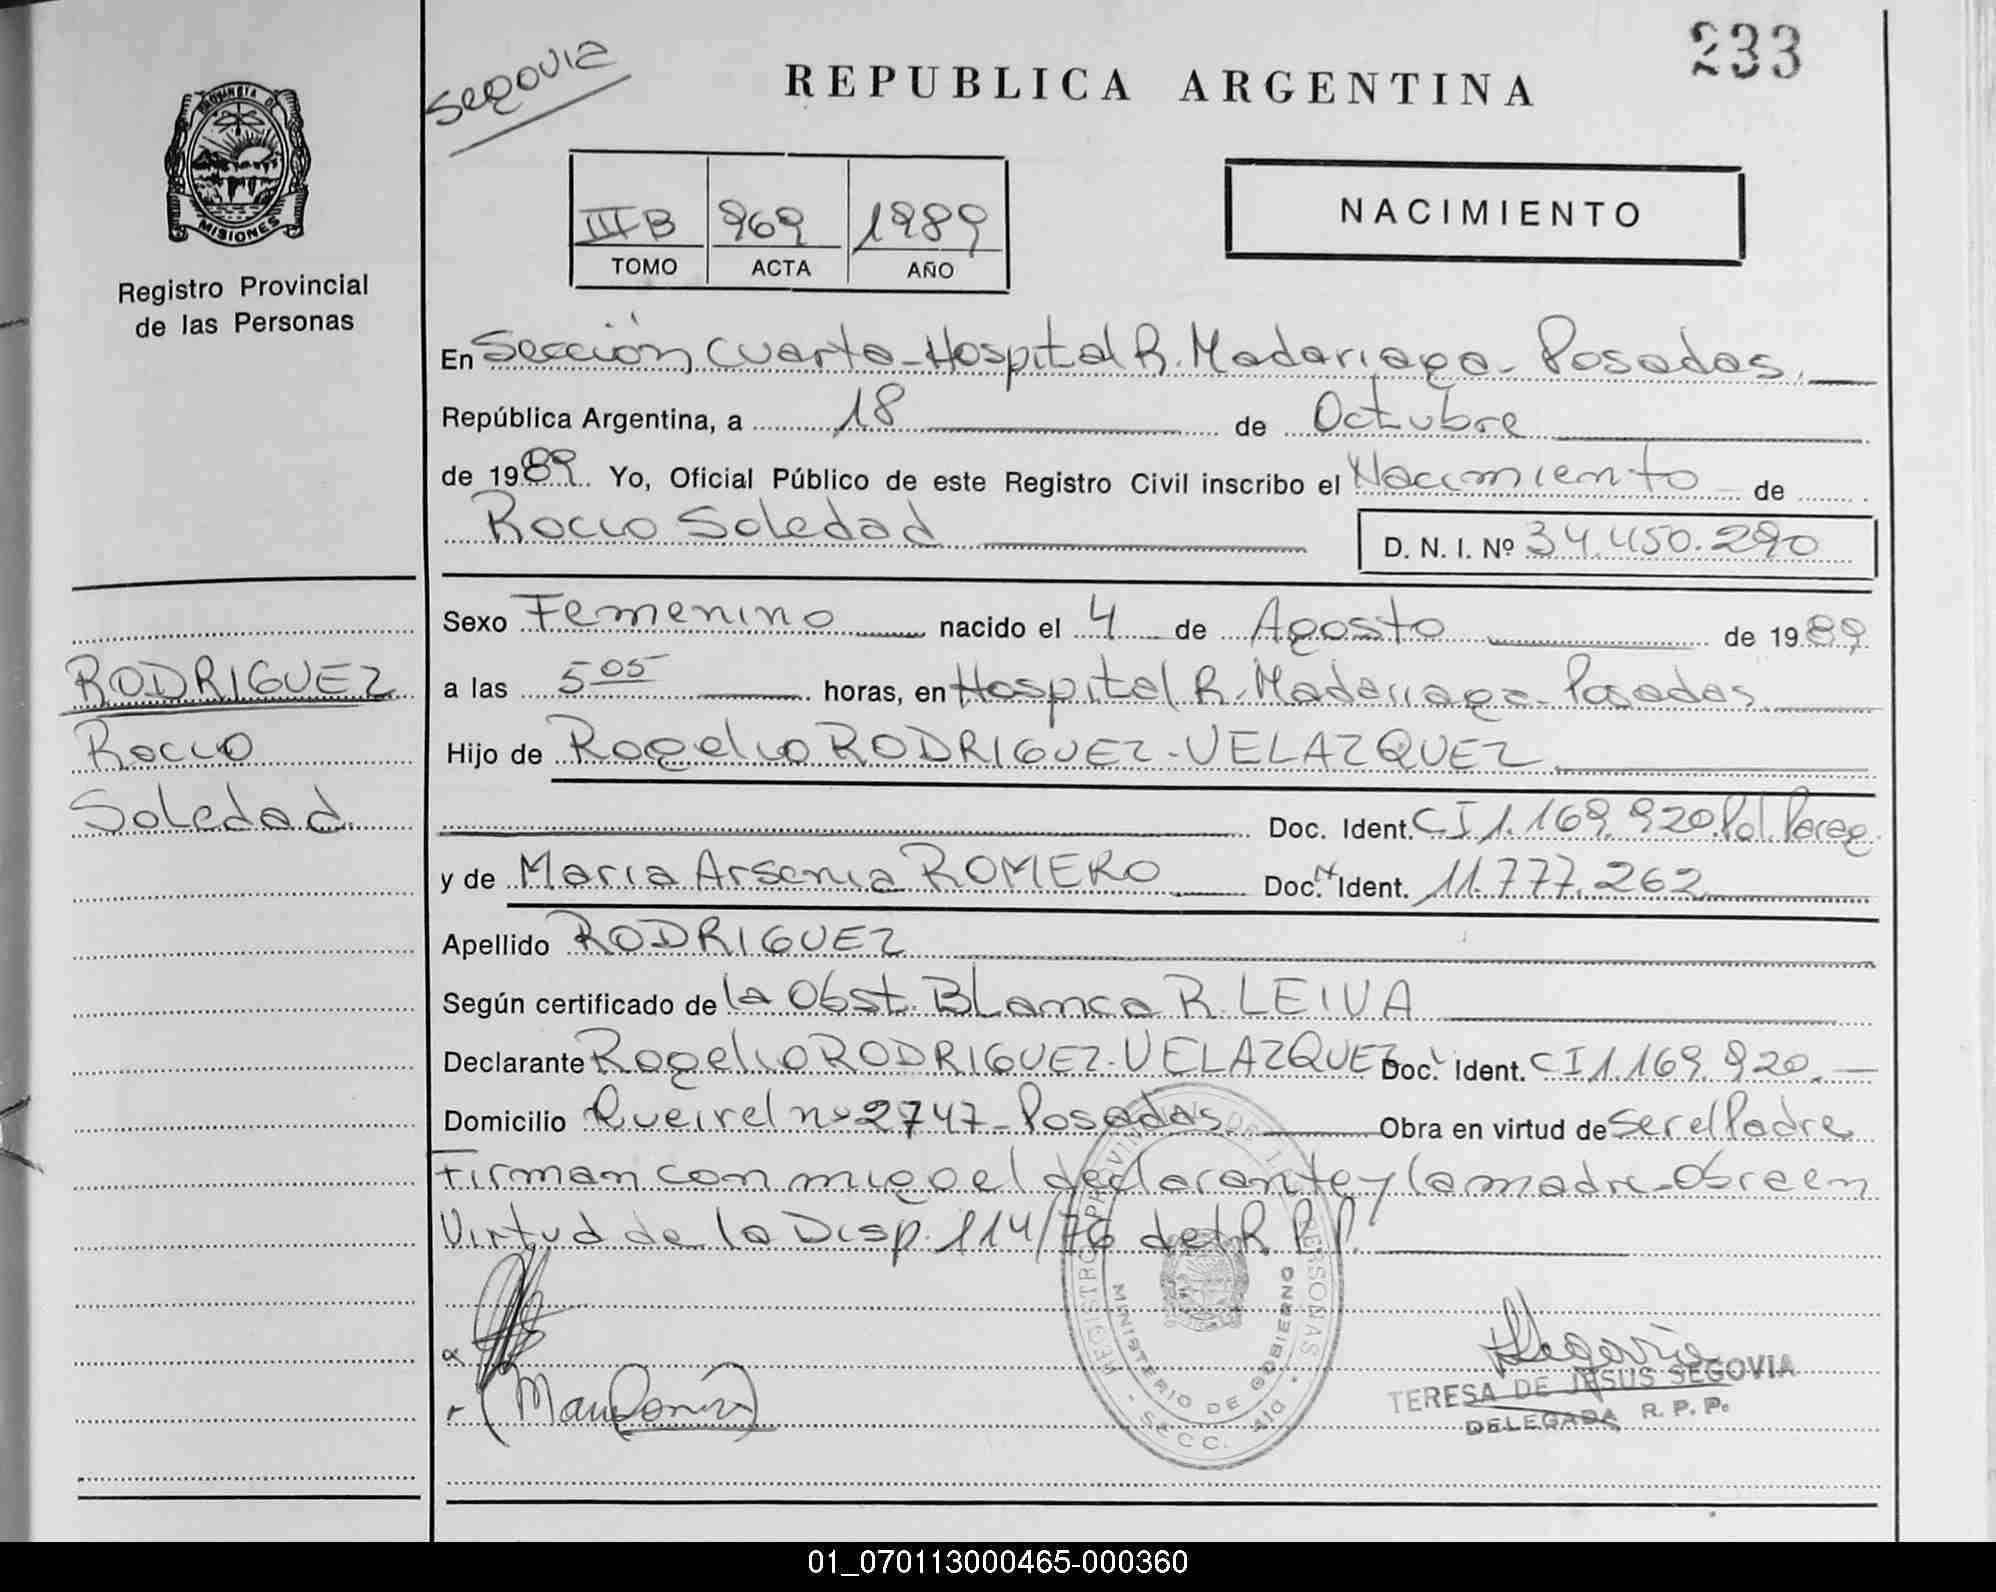 233
Segovia
REPUBLICA ARGENTINA
PROVINCIA DE
MISIONES
Registro Provincial
de las Personas
III B 969 1989
TOMO ACTA AÑO
NACIMIENTO
En Sección Cuarta-Hospital R. Madariaga- Posadas.
República Argentina, a 18 de Octubre
de 1989. Yo, Oficial Público de este Registro Civil inscribo el Nacimiento de
Rocio Soledad D. N. I. Nº 34.450.290
Sexo Femenino nacido el 4 de Agosto de 1989
a las 5 05 horas, en Hospital R. Madariaga- Posadas
Hijo de Rogelio RODRIGUEZ-VELAZQUEZ
Doc. Ident. CI 1.169.920. Pol. Parag.
y de Maria Arsenia ROMERO Doc. N Ident. 11.777.262
Apellido RODRIGUEZ
Según certificado de la Obst. Blanca R. LEIVA
Declarante Rogelio RODRIGUEZ-VELAZQUEZ Doc. Ident. CI 1.169.920.
Domicilio Rueirel nº 2747- Posadas Obra en virtud de ser el Padre
Firman conmigo el declarante y la madre-Obra en
Virtud de la Disp. 114/76 del R. P. P.
RODRIGUEZ
Rocio
Soledad
REGISTRO PROVINCIAL DE LAS PERSONAS
MINISTERIO DE GOBIERNO
SECC. 4ta
Segovia
TERESA DE JESUS SEGOVIA
DELEGADA R. P. P.
01_070113000465-000360